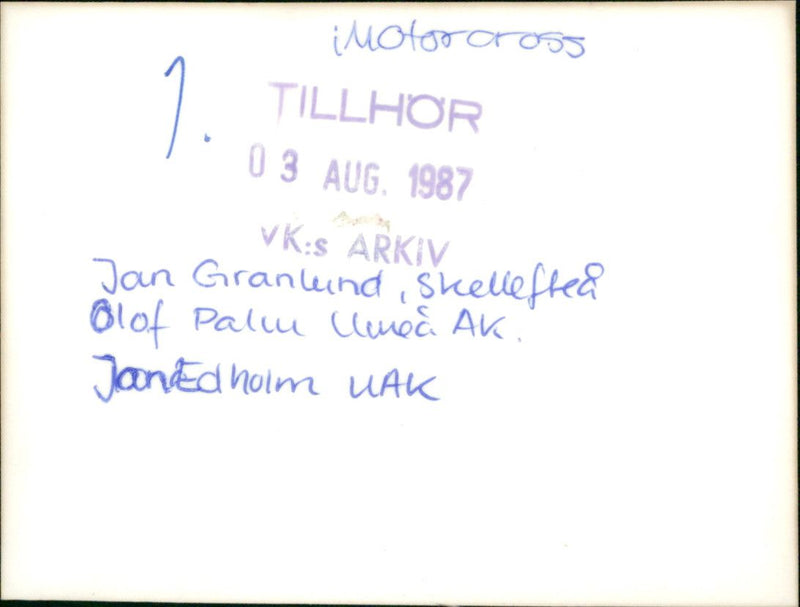 iMotorcross
1.
TILLHÖR
03 AUG. 1987
VK:s ARKIV
Jan Granlund, Skellefteå
Olof Palm Umeå AK.
Jan Edholm UAK